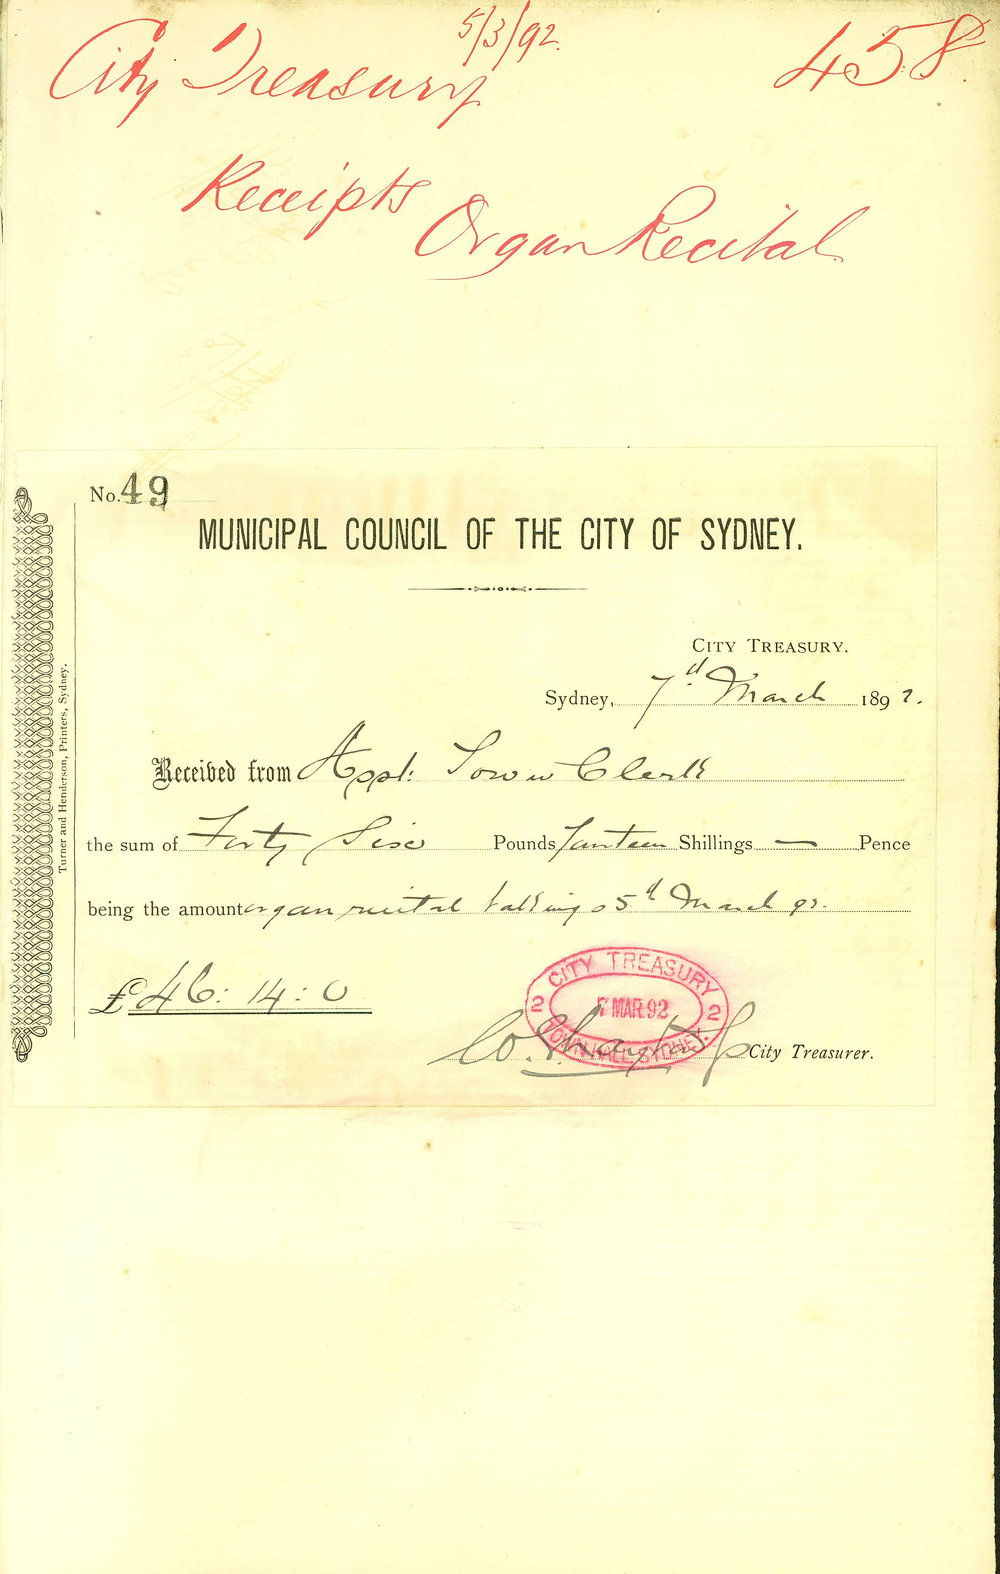 5/3/92.
City Treasury
458.
Receipts
Organ Recital
No. 49
MUNICIPAL COUNCIL OF THE CITY OF SYDNEY.
CITY TREASURY.
Sydney, 7d March 1892.
Received from Asst: Town Clerk
the sum of Forty Six Pounds fourteen Shillings — Pence
being the amount organ recital takings 5d March 92.
£46: 14: 0
CITY TREASURY
2 7 MAR. 92 2
TOWN HALL, SYDNEY.
City Treasurer.
Turner and Henderson, Printers, Sydney.